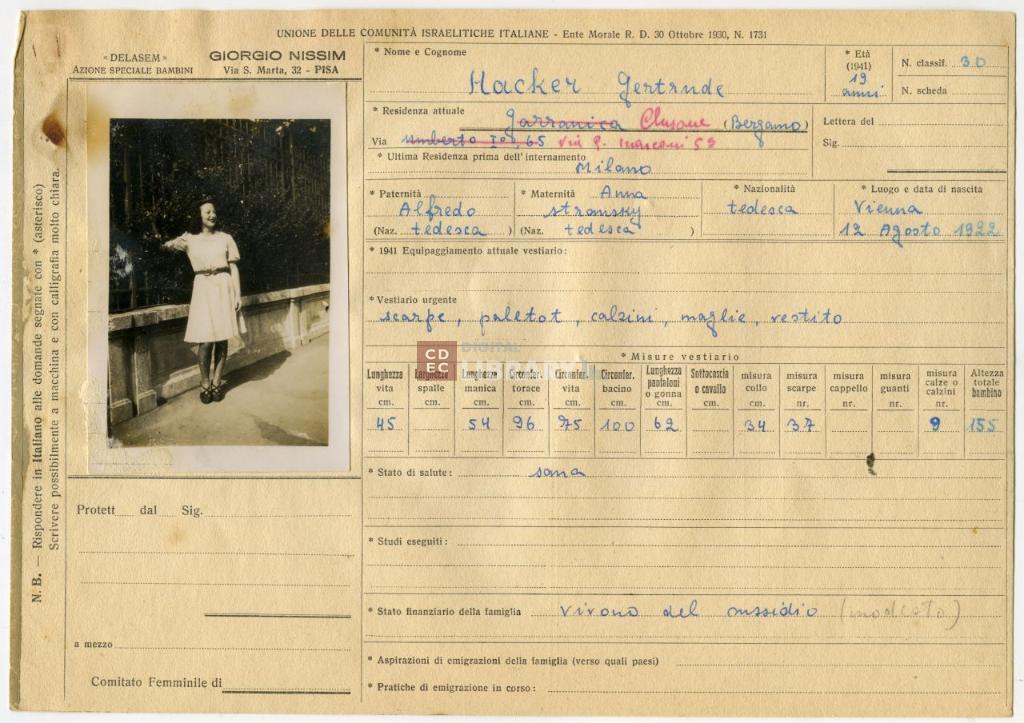 UNIONE DELLE COMUNITÀ ISRAELITICHE ITALIANE - Ente Morale R. D. 30 Ottobre 1930, N. 1731
« DELASEM »
AZIONE SPECIALE BAMBINI
GIORGIO NISSIM
Via S. Marta, 32 - PISA
* Nome e Cognome
Hacker Gertrude
* Età
(1941)
19
anni
N. classif. 30
N. scheda
* Residenza attuale
Clusone (Bergamo)
Via Umberto I°, 65 via G. Marconi 53
Lettera del
Sig.
* Ultima Residenza prima dell'internamento
Milano
* Paternità
Alfredo
(Naz. tedesca )
* Maternità Anna
Stransky
(Naz. tedesca )
* Nazionalità
tedesca
* Luogo e data di nascita
Vienna
12 Agosto 1922
* 1941 Equipaggiamento attuale vestiario:
* Vestiario urgente
scarpe, paletot, calzini, maglie, vestito
* Misure vestiario
Lunghezza vita cm. 45
Larghezza spalle cm.
Lunghezza manica cm. 54
Circonfer. torace cm. 96
Circonfer. vita cm. 75
Circonfer. bacino cm. 100
Lunghezza pantaloni o gonna cm. 62
Sottocoscia o cavallo cm.
misura collo cm. 34
misura scarpe nr. 37
misura cappello nr.
misura guanti nr.
misura calze o calzini nr. 9
Altezza totale bambino 155
* Stato di salute: sana
* Studi eseguiti:
* Stato finanziario della famiglia vivono del sussidio (modesto)
* Aspirazioni di emigrazioni della famiglia (verso quali paesi)
* Pratiche di emigrazione in corso:
Protett dal Sig.
a mezzo
Comitato Femminile di
N. B. — Rispondere in Italiano alle domande segnate con * (asterisco)
Scrivere possibilmente a macchina e con calligrafia molto chiara.
CD
EC
DIGITAL